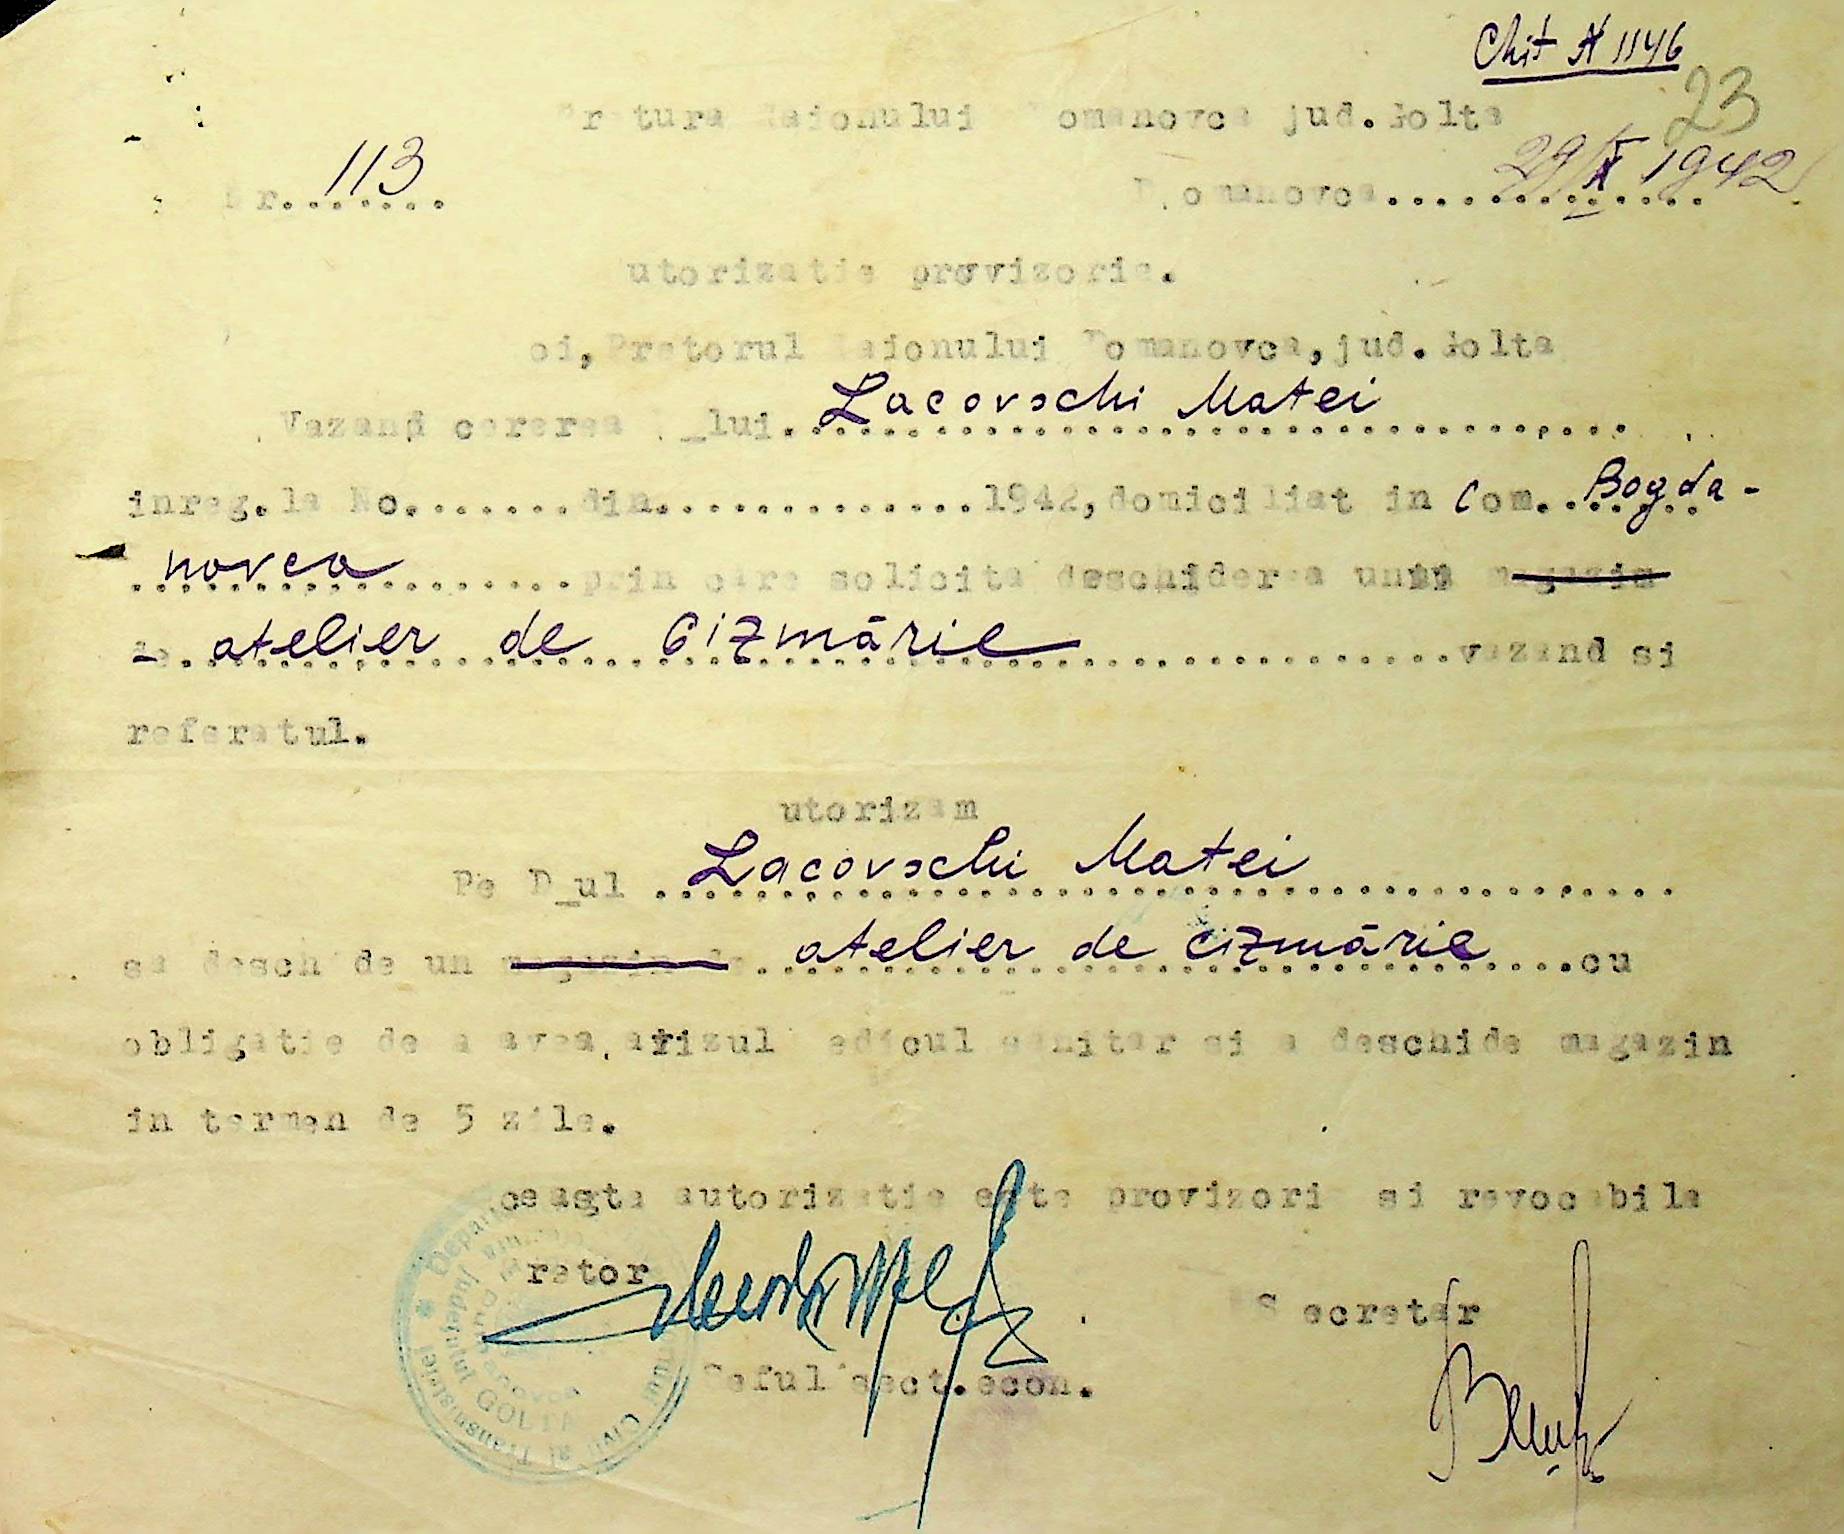 Chit № 1146
23
Pretura Raionului Domanovca jud. Golta
Nr. 113 Domanovca 29/X 1942
Autorizatie provizorie.
Noi, Pretorul Raionului Domanovca, jud. Golta
Vazand cererea D_lui Lacovschi Matei
inreg. la No. din 1942, domiciliat in Com. Bogda-
novca prin care solicita deschiderea unui magazin
de atelier de Cizmărie vazand si
referatul.
Autorizam
Pe D_ul Lacovschi Matei
sa deschide un magazin de atelier de cizmărie cu
obligatie de a avea avizul Medicul sanitar si a deschide magazin
in termen de 5 zile.
Aceasta autorizatie este provizorie si revocabila
Pretor
Secretar
Seful sect. econ.
Judeţului GOLTA
Civil al Transnistriei